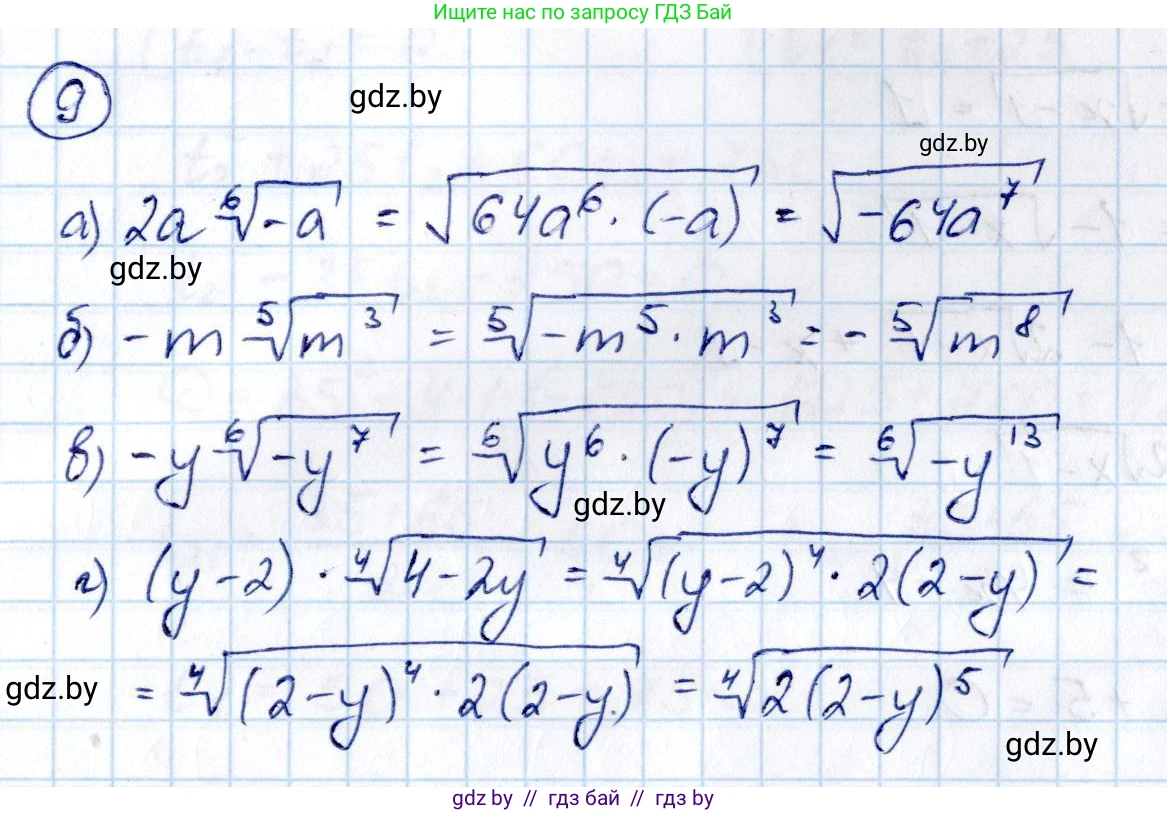 Ищите нас по запросу ГДЗ Бай
9
gdz.by
gdz.by
а) 2a ⁶√(-a) = √(64a⁶ · (-a)) = √(-64a⁷)
gdz.by
б) -m ⁵√(m³) = ⁵√(-m⁵ · m³) = - ⁵√(m⁸)
в) -y ⁶√(-y⁷) = ⁶√(y⁶ · (-y)⁷) = ⁶√(-y¹³)
gdz.by
г) (y-2) · ⁴√(4-2y) = ⁴√((y-2)⁴ · 2(2-y)) =
= ⁴√((2-y)⁴ · 2(2-y)) = ⁴√(2(2-y)⁵)
gdz.by
gdz.by
gdz.by // гдз бай // гдз by